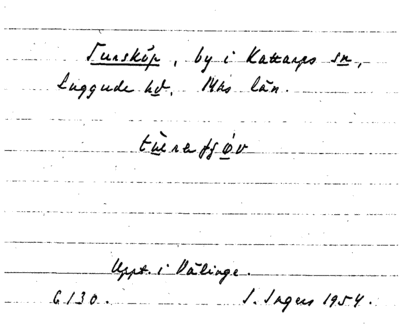 Tureköp, by i Kattarps sn,
Luggude hd, Mhs län.
Uppt. i Välinge.
6130. I. Ingers 1954.